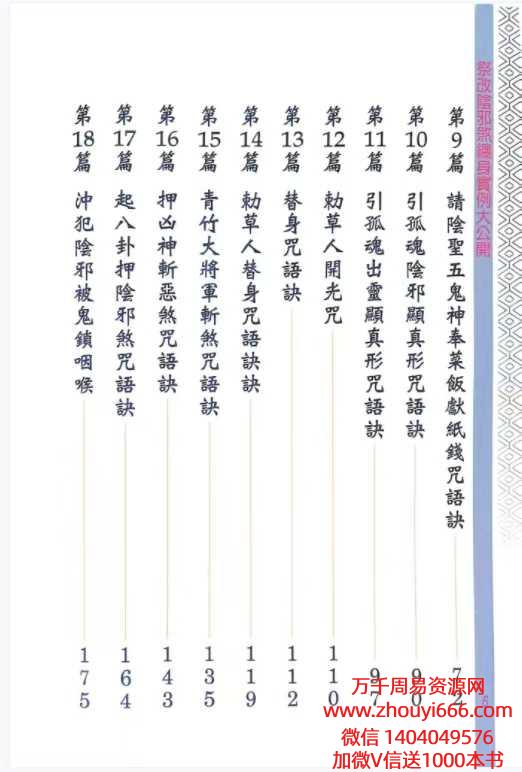 祭改陰邪煞纏身實例大公開
第9篇 請陰聖五鬼神奉菜飯獻紙錢咒語訣 72
第10篇 引孤魂陰邪顯真形咒語訣 90
第11篇 引孤魂出靈顯真形咒語訣 97
第12篇 勅草人開光咒 110
第13篇 替身咒語訣 112
第14篇 勅草人替身咒語訣訣 119
第15篇 青竹大將軍斬煞咒語訣 135
第16篇 押凶神斬惡煞咒語訣 143
第17篇 起八卦押陰邪煞咒語訣 164
第18篇 沖犯陰邪被鬼鎖咽喉 175
6
万千周易资源网
www.zhouyi666.com
微信 1404049576
加微V信送1000本书